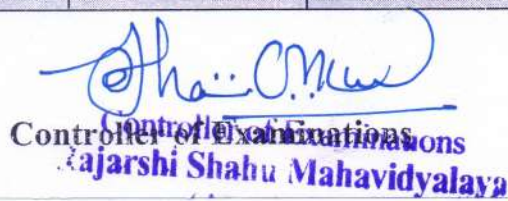 Controller of Examinations
Controller of Examinations
Rajarshi Shahu Mahavidyalaya